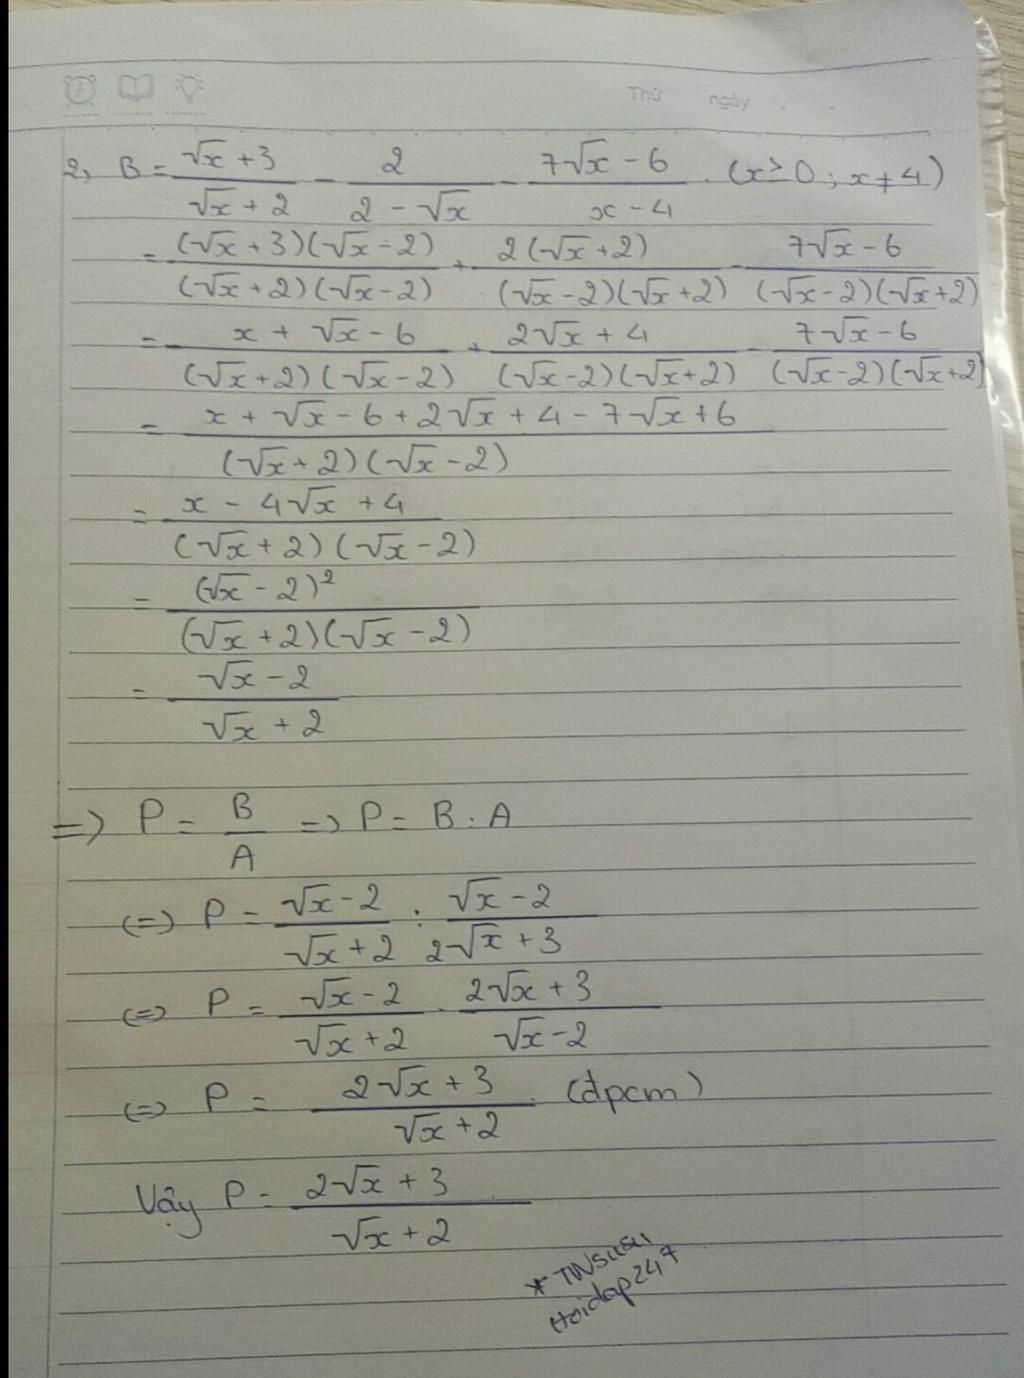 Thứ ngày
2, B = (√x + 3)/(√x + 2) - 2/(2 - √x) - (7√x - 6)/(x - 4) . (x ≥ 0 ; x ≠ 4)
= (√x + 3)(√x - 2)/(√x + 2)(√x - 2) + 2(√x + 2)/(√x - 2)(√x + 2) - (7√x - 6)/(√x - 2)(√x + 2)
= (x + √x - 6)/(√x + 2)(√x - 2) + (2√x + 4)/(√x - 2)(√x + 2) - (7√x - 6)/(√x - 2)(√x + 2)
= (x + √x - 6 + 2√x + 4 - 7√x + 6)/(√x + 2)(√x - 2)
= (x - 4√x + 4)/(√x + 2)(√x - 2)
= (√x - 2)²/(√x + 2)(√x - 2)
= (√x - 2)/(√x + 2)
=> P = B/A => P = B : A
(=) P = (√x - 2)/(√x + 2) : (√x - 2)/(2√x + 3)
(=) P = (√x - 2)/(√x + 2) . (2√x + 3)/(√x - 2)
(=) P = (2√x + 3)/(√x + 2) . (đpcm)
Vậy P = (2√x + 3)/(√x + 2)
* TWSUSU
Hoidap247